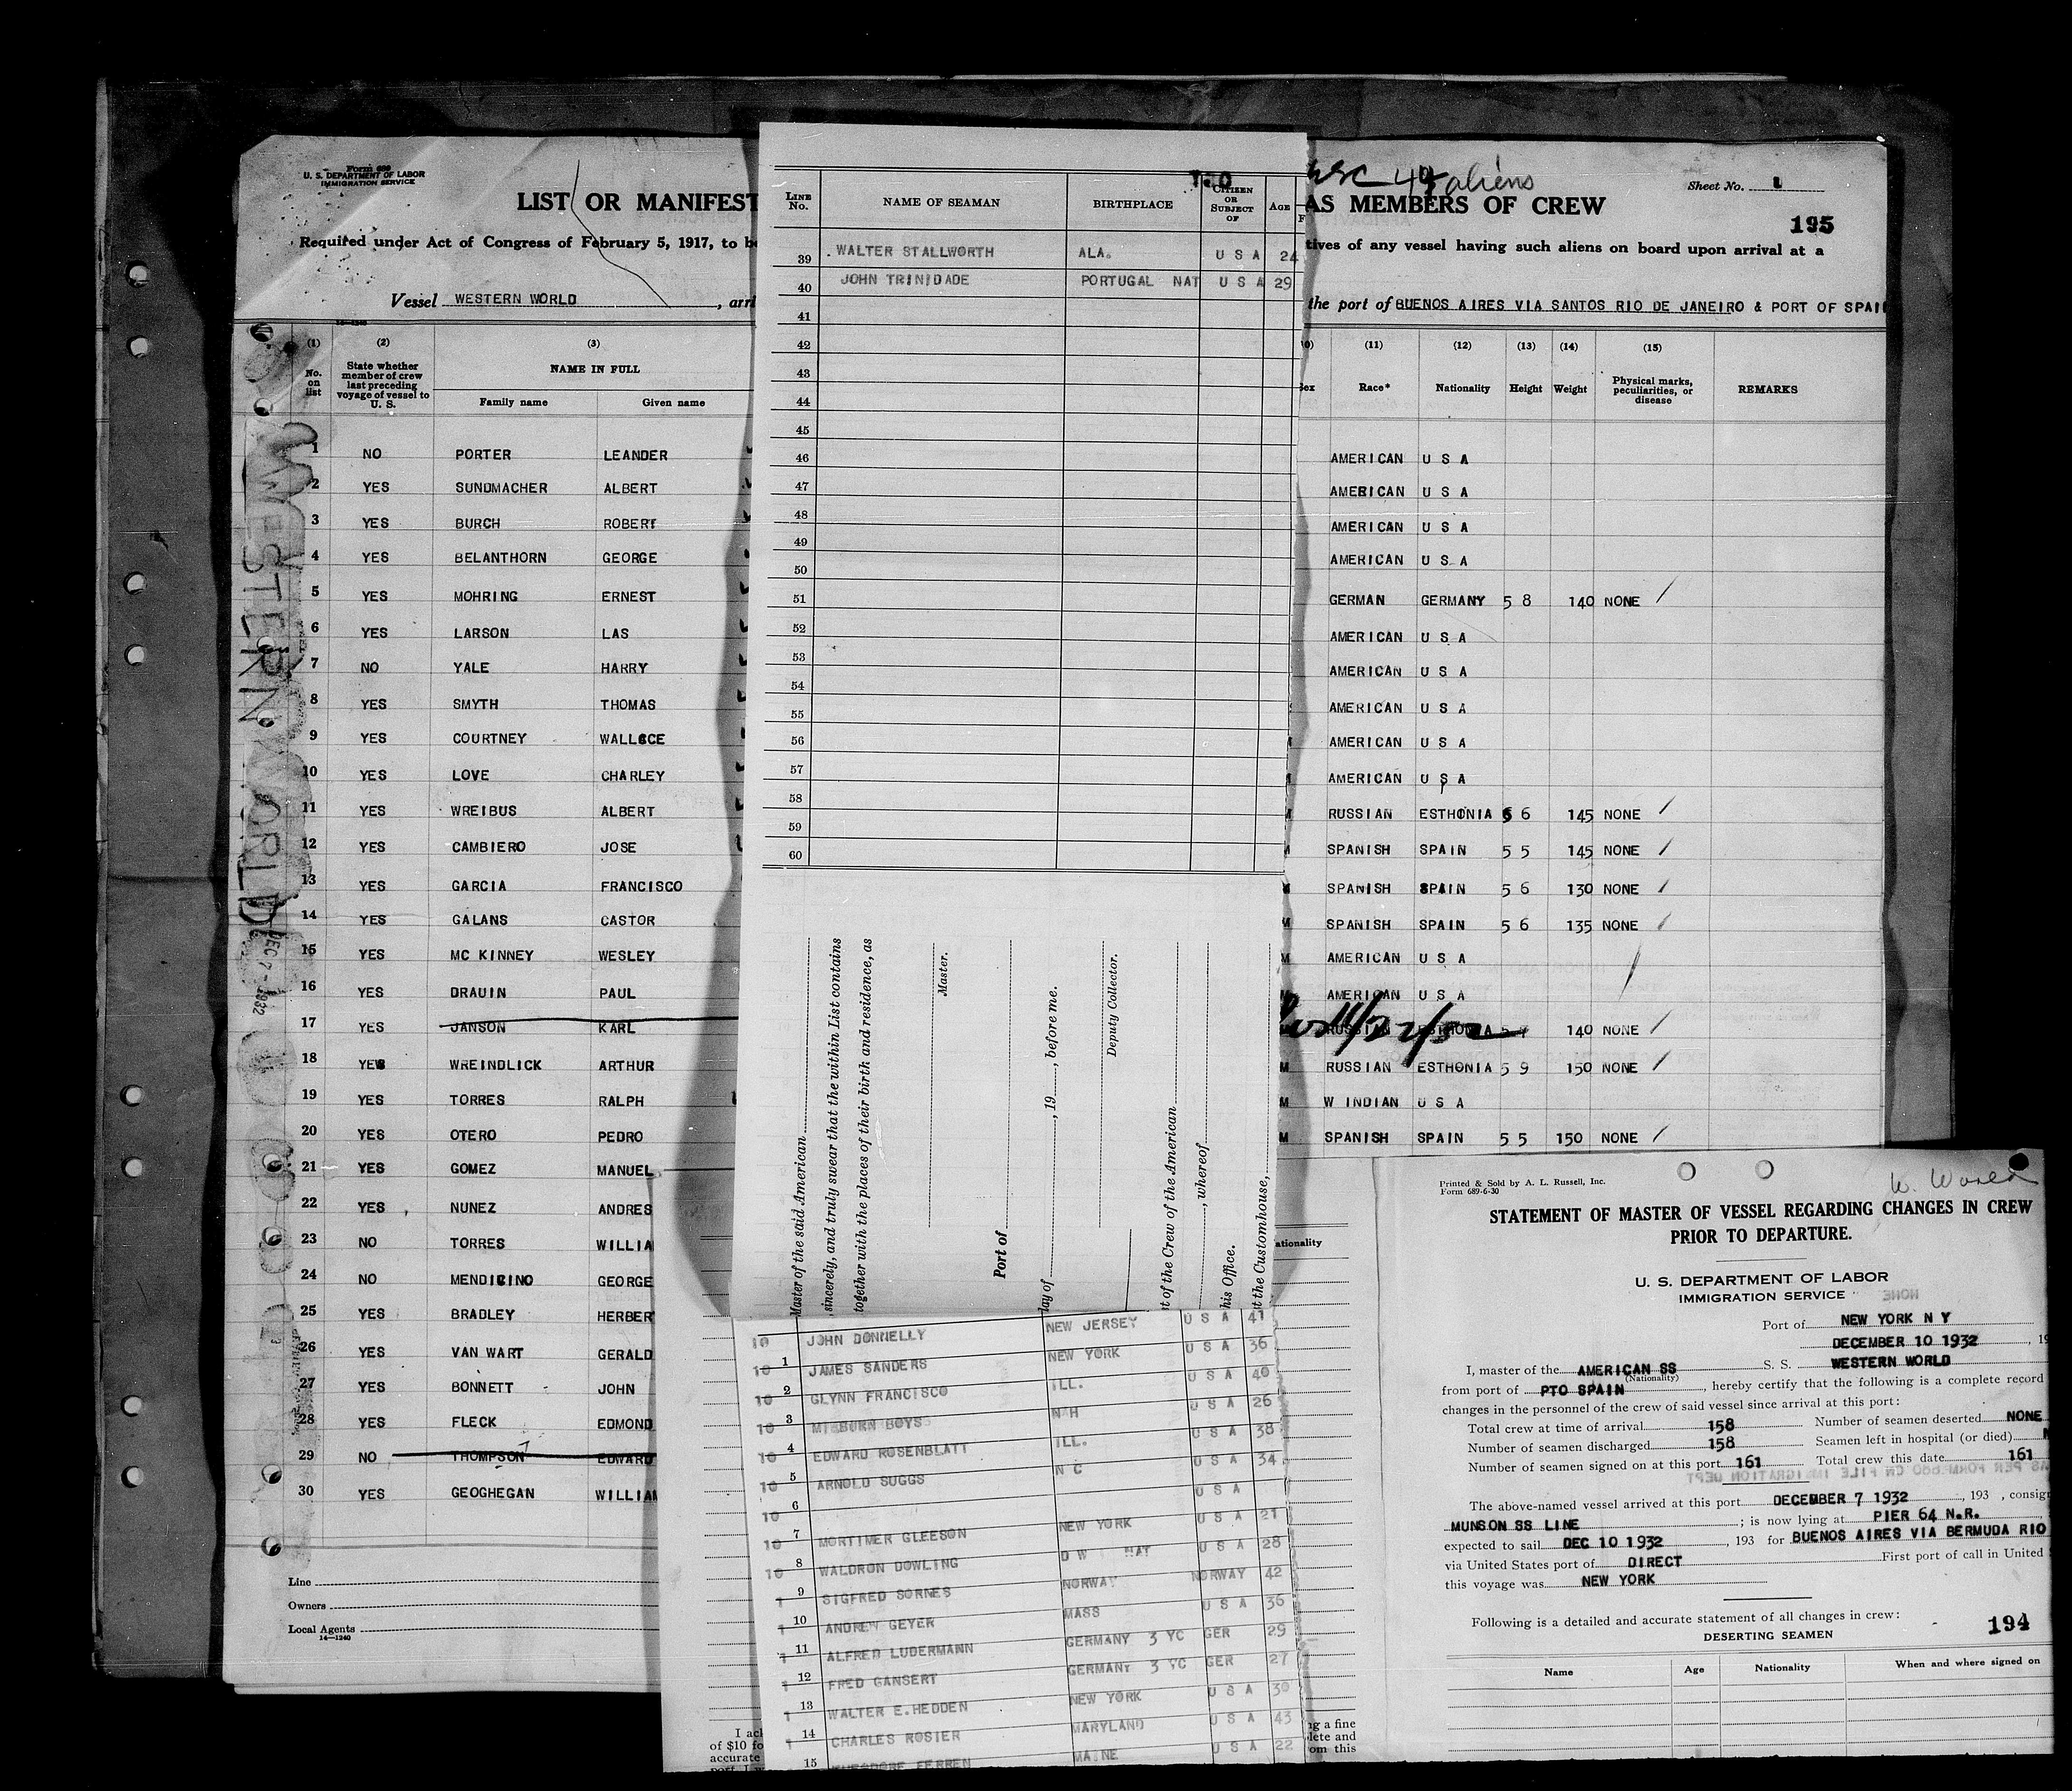 Form 689
U. S. DEPARTMENT OF LABOR
IMMIGRATION SERVICE
LIST OR MANIFEST
Required under Act of Congress of February 5, 1917, to b
Vessel WESTERN WORLD , arri
(1) (2) (3)
No. on list
State whether member of crew last preceding voyage of vessel to U. S.
NAME IN FULL
Family name Given name
1 NO PORTER LEANDER
2 YES SUNDMACHER ALBERT
3 YES BURCH ROBERT
4 YES BELANTHORN GEORGE
5 YES MOHRING ERNEST
6 YES LARSON LAS
7 NO YALE HARRY
8 YES SMYTH THOMAS
9 YES COURTNEY WALLACE
10 YES LOVE CHARLEY
11 YES WREIBUS ALBERT
12 YES CAMBIERO JOSE
13 YES GARCIA FRANCISCO
14 YES GALANS CASTOR
15 YES MC KINNEY WESLEY
16 YES DRAUIN PAUL
17 YES JANSON KARL
18 YES WREINDLICK ARTHUR
19 YES TORRES RALPH
20 YES OTERO PEDRO
21 YES GOMEZ MANUEL
22 YES NUNEZ ANDRES
23 NO TORRES WILLIA
24 NO MENDICINO GEORGE
25 YES BRADLEY HERBER
26 YES VAN WART GERALD
27 YES BONNETT JOHN
28 YES FLECK EDMOND
29 NO THOMPSON EDWARD
30 YES GEOGHEGAN WILLIAM
Line
Owners
Local Agents
14—1240
WESTERN WORLD
DEC 7 - 1932
LINE No. NAME OF SEAMAN BIRTHPLACE CITIZEN OR SUBJECT OF AGE
39 WALTER STALLWORTH ALA. U S A 24
40 JOHN TRINIDADE PORTUGAL NAT U S A 29
41
42
43
44
45
46
47
48
49
50
51
52
53
54
55
56
57
58
59
60
Master of the said American
sincerely, and truly swear that the within List contains
together with the places of their birth and residence, as
Master.
Port of
day of , 19 , before me.
Deputy Collector.
st of the Crew of the American
, whereof
his Office.
t the Customhouse,
JOHN DONNELLY NEW JERSEY U S A 41
1 JAMES SANDERS NEW YORK U S A 36
2 GLYNN FRANCISCO ILL. U S A 40
3 BOYS N H U S A 26
4 EDWARD ROSENBLATT ILL. U S A 38
5 ARNOLD SUGGS N C U S A 34
6 U S A
7 MORTIMER GLEESON NEW YORK U S A 21
8 WALDRON DOWLING D W I NAT U S A 28
9 SIGFRED SORNES NORWAY NORWAY 42
10 ANDREW GEYER MASS U S A 36
11 ALFRED LUDERMANN GERMANY 3 YC GER 29
12 FRED GANSERT GERMANY 3 YC GER 27
13 WALTER E. HEDDEN NEW YORK U S A 30
14 CHARLES ROSIER MARYLAND U S A 43
15 FERREN MAINE U S A 22
49 aliens
Sheet No. 1
AS MEMBERS OF CREW
195
tives of any vessel having such aliens on board upon arrival at a
the port of BUENOS AIRES VIA SANTOS RIO DE JANEIRO & PORT OF SPAI
(11) (12) (13) (14) (15)
Sex Race* Nationality Height Weight Physical marks, peculiarities, or disease REMARKS
AMERICAN U S A
AMERICAN U S A
AMERICAN U S A
AMERICAN U S A
GERMAN GERMANY 5 8 140 NONE
AMERICAN U S A
AMERICAN U S A
AMERICAN U S A
AMERICAN U S A
AMERICAN U S A
M RUSSIAN ESTHONIA 5 6 145 NONE
M SPANISH SPAIN 5 5 145 NONE
M SPANISH SPAIN 5 6 130 NONE
M SPANISH SPAIN 5 6 135 NONE
M AMERICAN U S A
AMERICAN U S A
RUSSIAN ESTHONIA 140 NONE
M RUSSIAN ESTHONIA 5 9 150 NONE
M W INDIAN U S A
M SPANISH SPAIN 5 5 150 NONE
ationality
Printed & Sold by A. L. Russell, Inc.
Form 689-6-30
W. World
STATEMENT OF MASTER OF VESSEL REGARDING CHANGES IN CREW
PRIOR TO DEPARTURE.
U. S. DEPARTMENT OF LABOR
IMMIGRATION SERVICE
Port of NEW YORK N Y
DECEMBER 10 1932 , 19
I, master of the AMERICAN SS S. S. WESTERN WORLD
(Nationality)
from port of PTO SPAIN , hereby certify that the following is a complete record
changes in the personnel of the crew of said vessel since arrival at this port:
Total crew at time of arrival 158 Number of seamen deserted NONE
Number of seamen discharged 158 Seamen left in hospital (or died) N
Number of seamen signed on at this port 161 Total crew this date 161
The above-named vessel arrived at this port DECEMBER 7 1932 , 193 , consig
MUNSON SS LINE ; is now lying at PIER 64 N.R.
expected to sail DEC 10 1932 , 193 for BUENOS AIRES VIA BERMUDA RIO
via United States port of DIRECT First port of call in United
this voyage was NEW YORK
Following is a detailed and accurate statement of all changes in crew:
194
DESERTING SEAMEN
Name Age Nationality When and where signed on
I ack
of $10 fo
accurate
ng a fine
lete and
om this